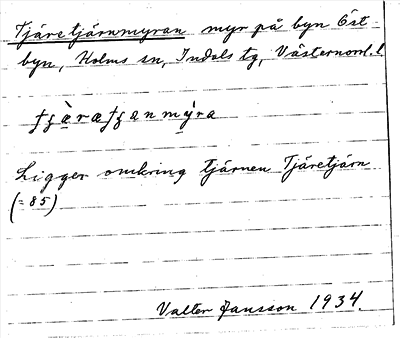 Tjäretjärnmyran myr på byn Öst
byn, Holms sn, Indals tg, Västernorrl. l.
Ligger omkring tjärnen Tjäretjärn
(= 85)
Valter Jansson 1934.